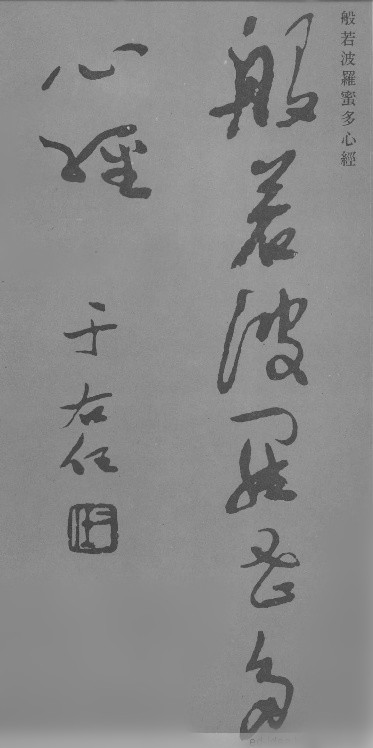 般若波羅蜜多心經
般若波羅蜜多
心經
于右任